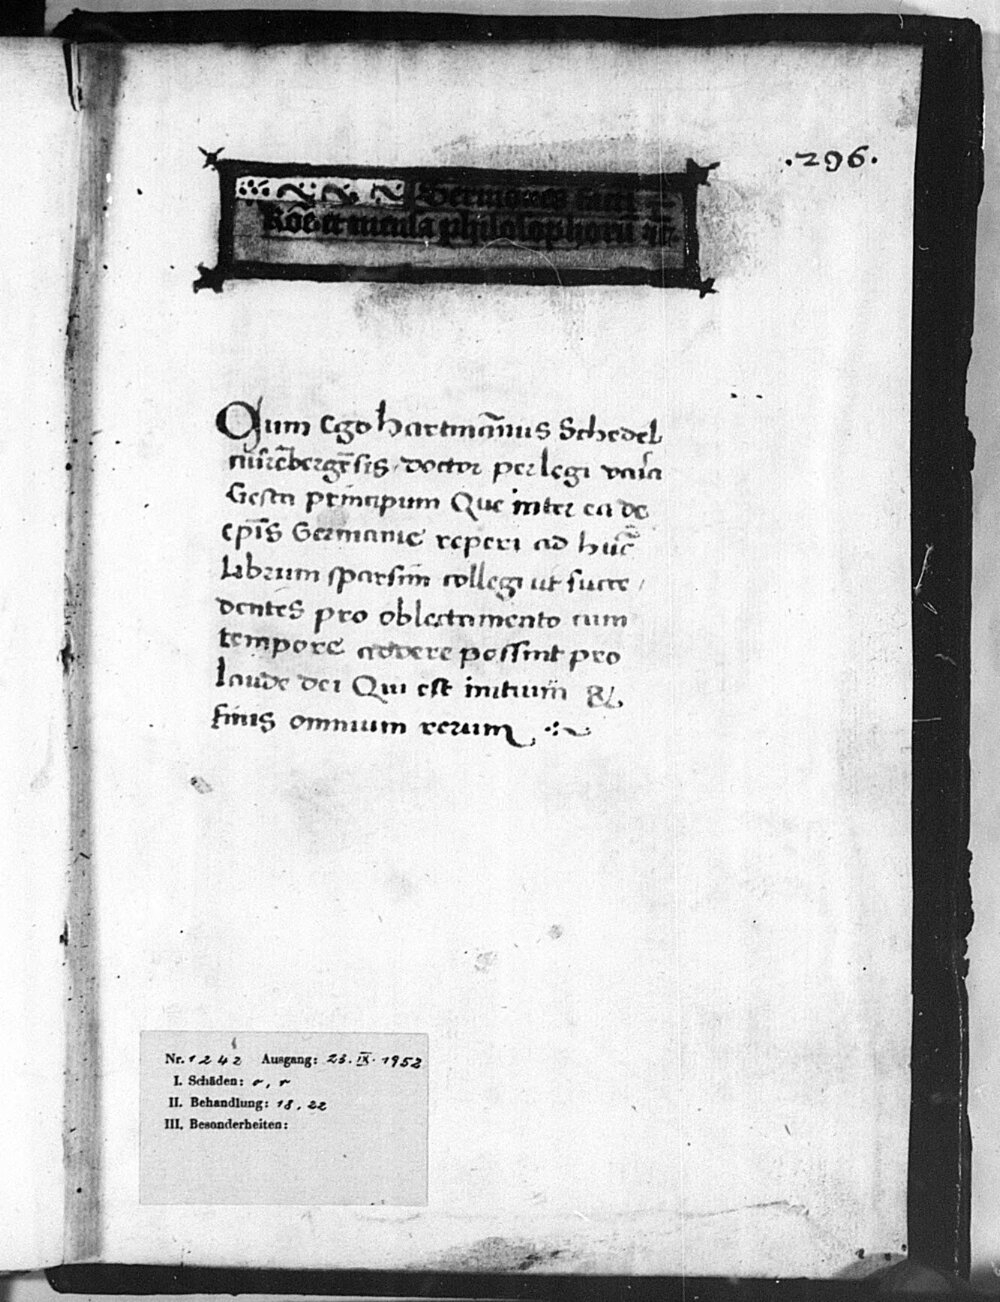 .296.
Sermones sacri
Rōe et mensa philosophorū
Qum Ego hartmānus Schedel
nurēbergēsis doctor perlegi varia
Gesta principum Que inter ea de
ep̄is Germanie reperi ad hūc
Librum sparsim collegi ut succe
dentes pro oblectamento cum
tempore addere possint pro
laude dei Qui est initium &
finis omnium rerum
Nr. 1242 Ausgang: 23. IX. 1952
I. Schäden: r, r
II. Behandlung: 18, 22
III. Besonderheiten: